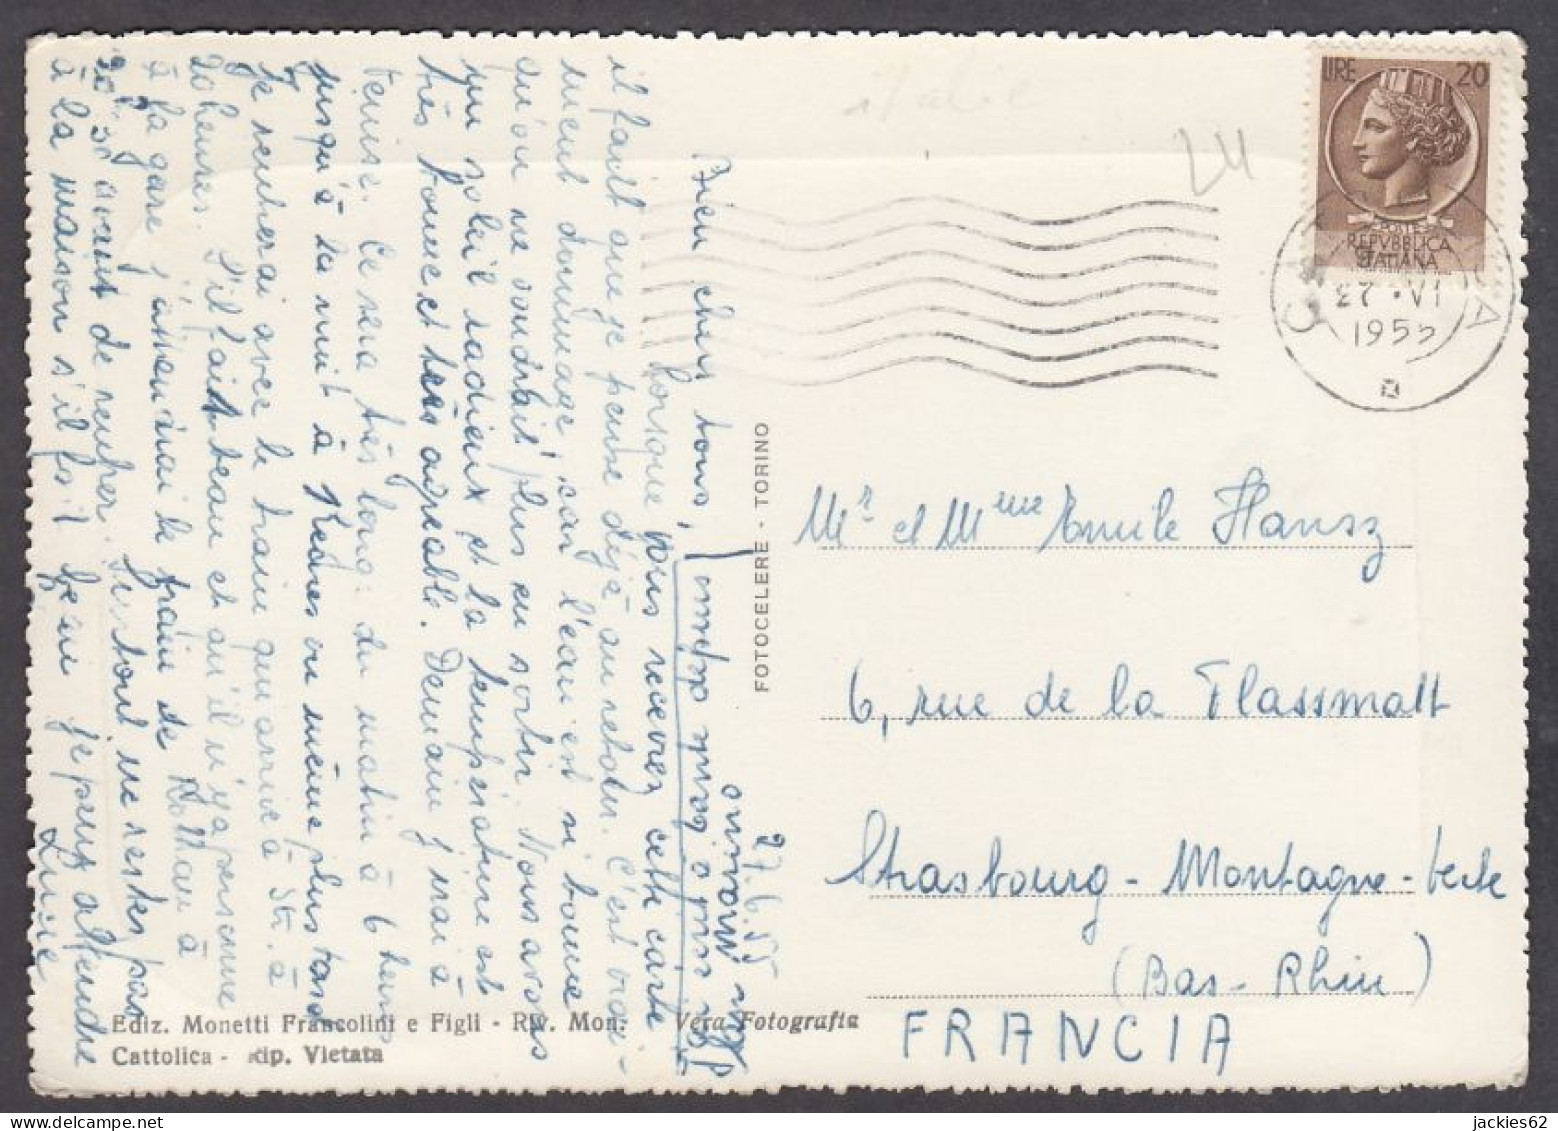 27.6.55
Bien chers tous,
Lorsque vous recevrez cette carte
il faut que je pense déjà au retour. C'est vrai-
ment dommage, car l'eau est si bonne
qu'on ne voudrait plus en sortir. Nous avons
un soleil radieux et la température est
très bonne et très agréable. Demain j'irai à
Venise. Ce sera très long: du matin à 6 heures
jusqu'à la nuit à heures ou même plus tard
Je rentrerai avec le train qui arrive à Str. à
20 heures. S'il fait beau et qu'il n'y a personne
à la gare, j'attendrai le train de à
20h 30 avant de rentrer. Surtout ne restez pas
à la maison s'il fait beau je peux attendre
Lucie
italie
24
LIRE 20
POSTE
REPVBBLICA
ITALIANA
27 • VI
1955
Mr et Mme Emile Hansz
6, rue de la Flassmatt
Strasbourg - Montagne-Verte
(Bas-Rhin)
FRANCIA
FOTOCELERE - TORINO
Ediz. Monetti Francolini e Figli - Riv. Mon. Vera Fotografia
Cattolica - Rip. Vietata
jackies62